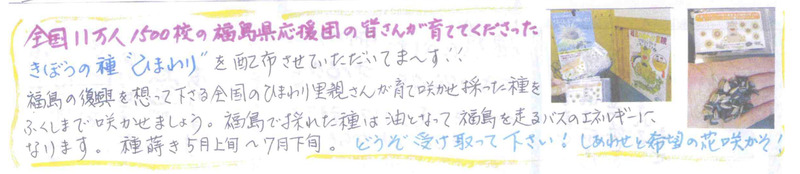 全国11万人1500校の福島県応援団の皆さんが育ててくださった
きぼうの種"ひまわり"を配布させていただいてま〜す!!
福島の復興を想って下さる全国のひまわり里親さんが育て咲かせ採った種を
ふくしまで咲かせましょう。福島で採れた種は油となって福島を走るバスのエネルギーに、
なります。種蒔き5月上旬〜7月下旬。どうぞ受け取って下さい!しあわせと希望の花咲かそ!